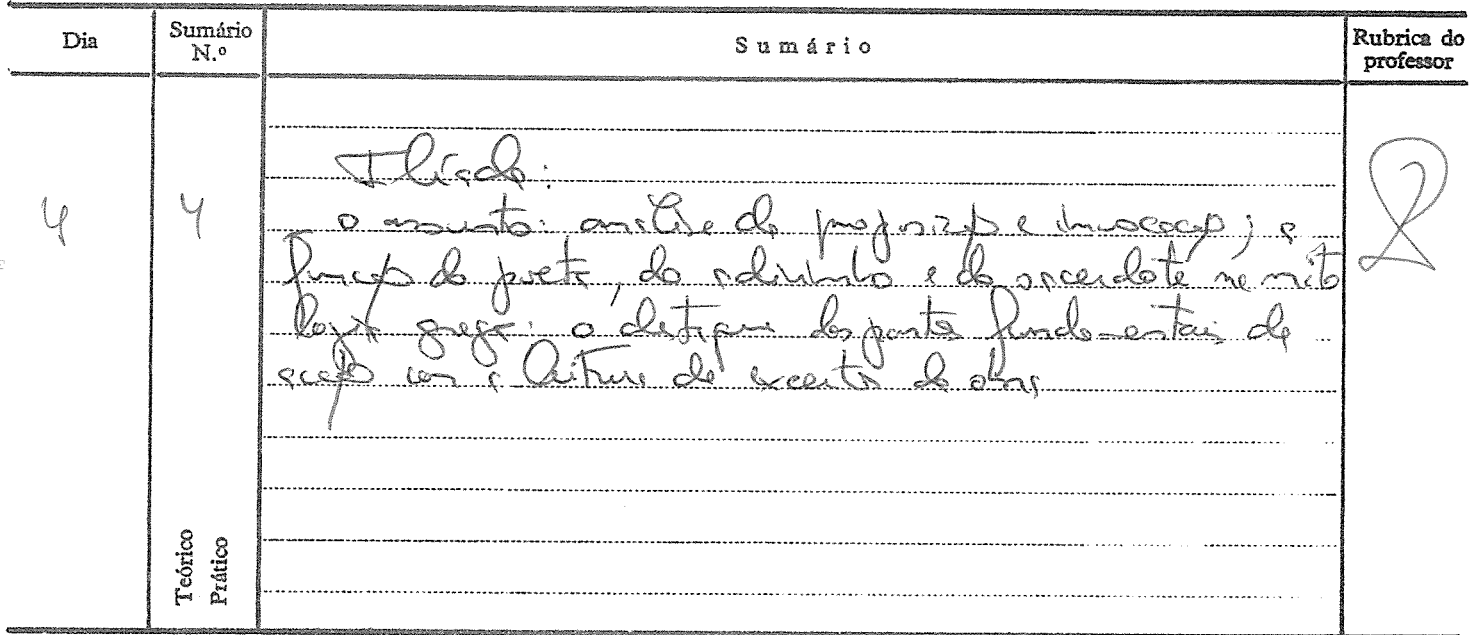 Dia
Sumário
N.º
Sumário
Rubrica do
professor
4
4
Ilíada:
o assunto: análise da proposição e invocação; a
função do poeta, do adivinho e do sacerdote na mito
logia grega: o destaque dos pontos fundamentais da
acção com a leitura de excertos da obra
Teórico
Prático